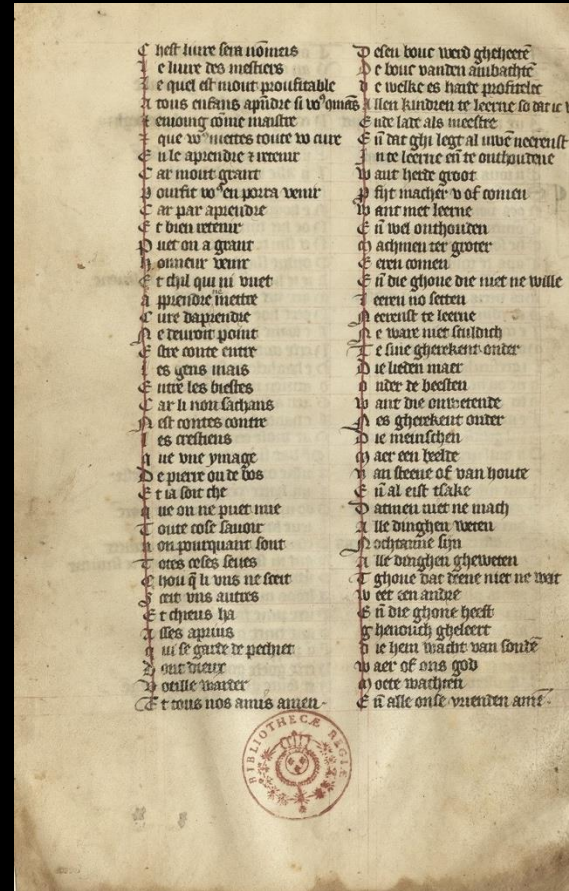 C hest liure sera nōmeis
L e liure des mestiers
L e quel est mout proufitable
A tous enfans apn̄dre
T enoing cōme maistre
T que voꝰ mettes toute vo cure
E n le aprendre ⁊ retenir
C ar mout grant
P ourfit voꝰ en porra venir
C ar par aprendre
E t bien retenir
P uet on a grant
H onneur venir
E t chil qui ni vuet
A pprendre ne mettre
C ure daprendre
N e deuroit point
E stre conte entre
L es gens mais
E ntre les biestes
C ar li non sachans
N est contes contre
L es crestiens
Q ue vne ymage
D e pierre ou de bos
E t ia soit che
Q ue on ne puet mie
T oute cose sauoir
N on pourquant sont
T otes coses seues
C hou q̄ li vns ne sceit
S ceit vns autres
E t chieus ha
A sses apriis
Q ui se garde de pechiet
D ont dieux
V oeille warder
E t tous nos amis amen
D esen bouc werd gheheetē
D e bouc vanden ambachtē
D e welke es harde profitelec
A llen kindren te leerne
E nde late als meestre
E n̄ dat ghi legt al uwen neerenst
I n te leerne en̄ te onthoudene
W ant herde groot
P fijt macher v of comen
W ant met leerne
E n̄ wel onthouden
M achmen ter groter
E eren comen
E n̄ die ghone die niet ne wille
L eeren no setten
N eerenst te leerne
N e ware niet sculdich
T e sine gherekent onder
D ie lieden maer
O nder de beesten
W ant die onwetende
N es gherekent onder
D ie meinschen
M aer een beelde
V an steene of van houte
E n̄ al eist tsake
D atmen niet ne mach
A lle dinghen weten
N ochtanne sijn
A lle dinghen gheweten
T ghone dat deene niet ne wat
W eet een andre
E n̄ die ghone heeft
G henouch gheleert
D ie hem wacht van sondē
W aer of ons god
M oete wachten
E n̄ alle onse vrienden amē
BIBLIOTHECÆ REGIÆ